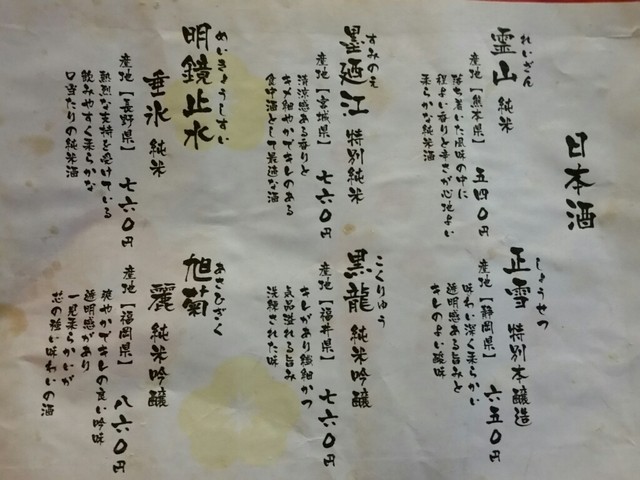 日本酒
れいざん
霊山 純米
産地【熊本県】 五四〇円
落ち着いた風味の中に
程よい香りと辛さが心地よい
柔らかな純米酒
すみのえ
墨廼江 特別純米
産地【宮城県】 七六〇円
清涼感ある香りと
キメ細やかでキレのある
食中酒として最適な酒
めいきょうしすい
明鏡止水
垂氷 純米
産地【長野県】 七六〇円
熱烈な支持を受けている
飲みやすく柔らかな
口当たりの純米酒
しょうせつ
正雪 特別本醸造
産地【静岡県】 六五〇円
味わい深く柔らかく
透明感ある旨みと
キレのよい酸味
こくりゅう
黒龍 純米吟醸
産地【福井県】 七六〇円
キレがあり繊細かつ
気品溢れる旨み
洗練された味
あさひぎく
旭菊
麗 純米吟醸
産地【福岡県】 八六〇円
穏やかでキレの良い吟味
透明感があり
一見柔らかいが
芯の強い味わいの酒